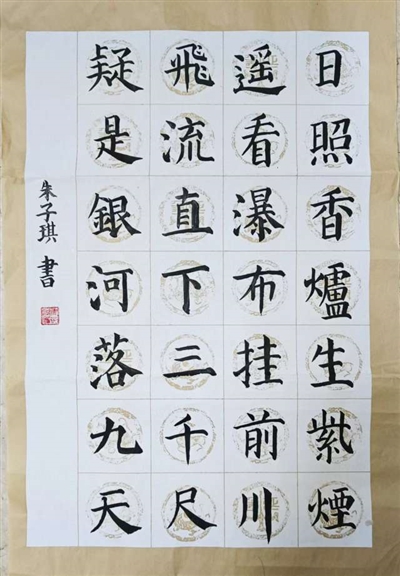 日照香爐生紫煙
遥看瀑布挂前川
飛流直下三千尺
疑是銀河落九天
朱子琪書